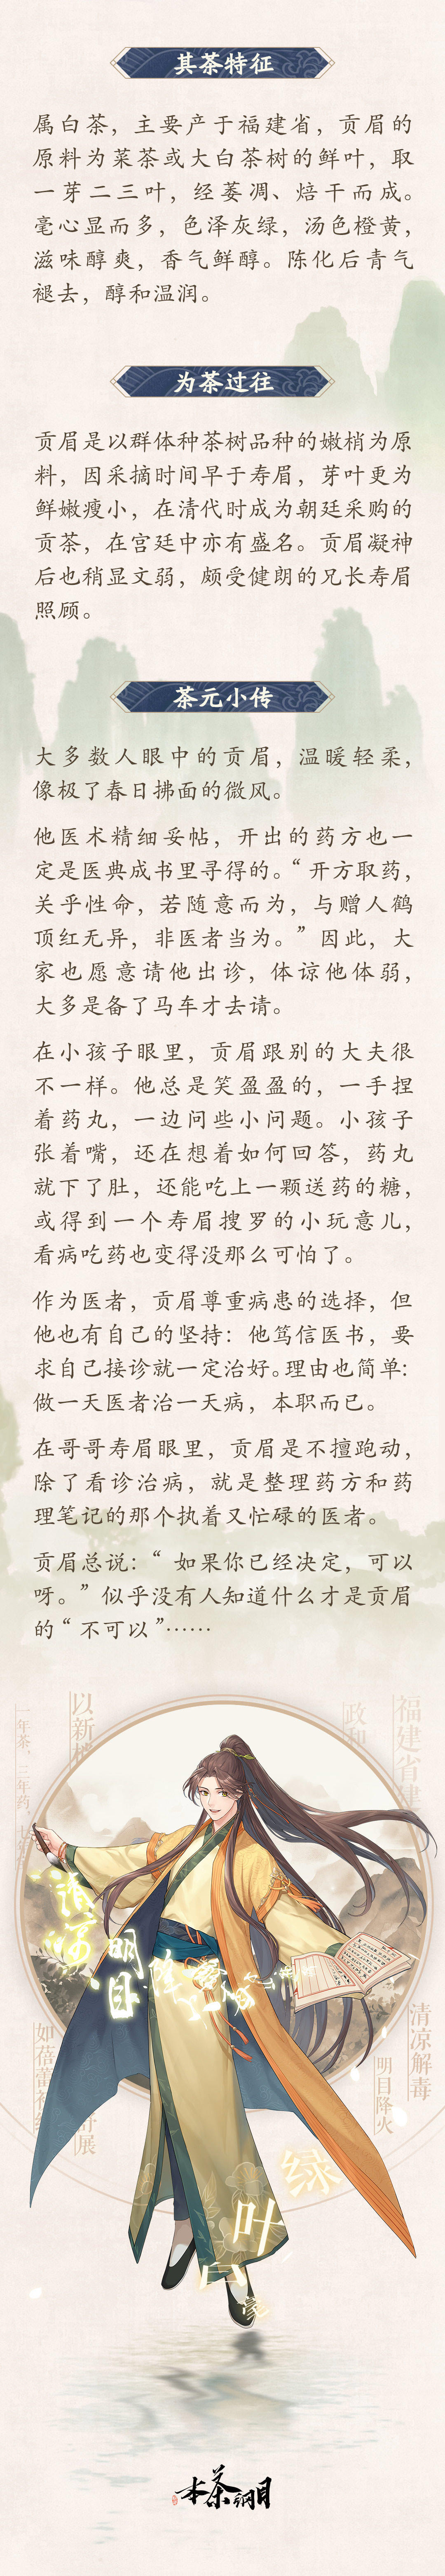 其茶特征
属白茶，主要产于福建省，贡眉的
原料为菜茶或大白茶树的鲜叶，取
一芽二三叶，经萎凋、焙干而成。
毫心显而多，色泽灰绿，汤色橙黄，
滋味醇爽，香气鲜醇。陈化后青气
褪去，醇和温润。
为茶过往
贡眉是以群体种茶树品种的嫩梢为原
料，因采摘时间早于寿眉，芽叶更为
鲜嫩瘦小，在清代时成为朝廷采购的
贡茶，在宫廷中亦有盛名。贡眉凝神
后也稍显文弱，颇受健朗的兄长寿眉
照顾。
茶元小传
大多数人眼中的贡眉，温暖轻柔，
像极了春日拂面的微风。
他医术精细妥帖，开出的药方也一
定是医典成书里寻得的。“开方取药，
关乎性命，若随意而为，与赠人鹤
顶红无异，非医者当为。”因此，大
家也愿意请他出诊，体谅他体弱，
大多是备了马车才去请。
在小孩子眼里，贡眉跟别的大夫很
不一样。他总是笑盈盈的，一手捏
着药丸，一边问些小问题。小孩子
张着嘴，还在想着如何回答，药丸
就下了肚，还能吃上一颗送药的糖，
或得到一个寿眉搜罗的小玩意儿，
看病吃药也变得没那么可怕了。
作为医者，贡眉尊重病患的选择，但
他也有自己的坚持：他笃信医书，要
求自己接诊就一定治好。理由也简单：
做一天医者治一天病，本职而已。
在哥哥寿眉眼里，贡眉是不擅跑动，
除了看诊治病，就是整理药方和药
理笔记的那个执着又忙碌的医者。
贡眉总说：“如果你已经决定，可以
呀。”似乎没有人知道什么才是贡眉
的“不可以”……
一年茶，三年药，七
以新
政和
福建省建
清
明目
如蓓蕾初
舒展
清凉解毒
明目降火
绿
叶
白
毫
本茶纲目